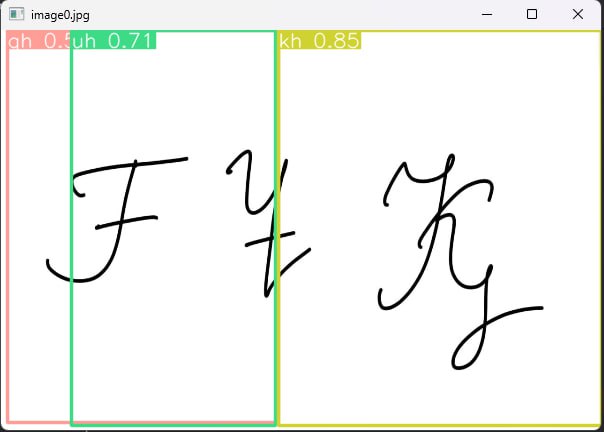 image0.jpg
gh 0.5 uh 0.71 kh 0.85
Ғ Ұ Қ